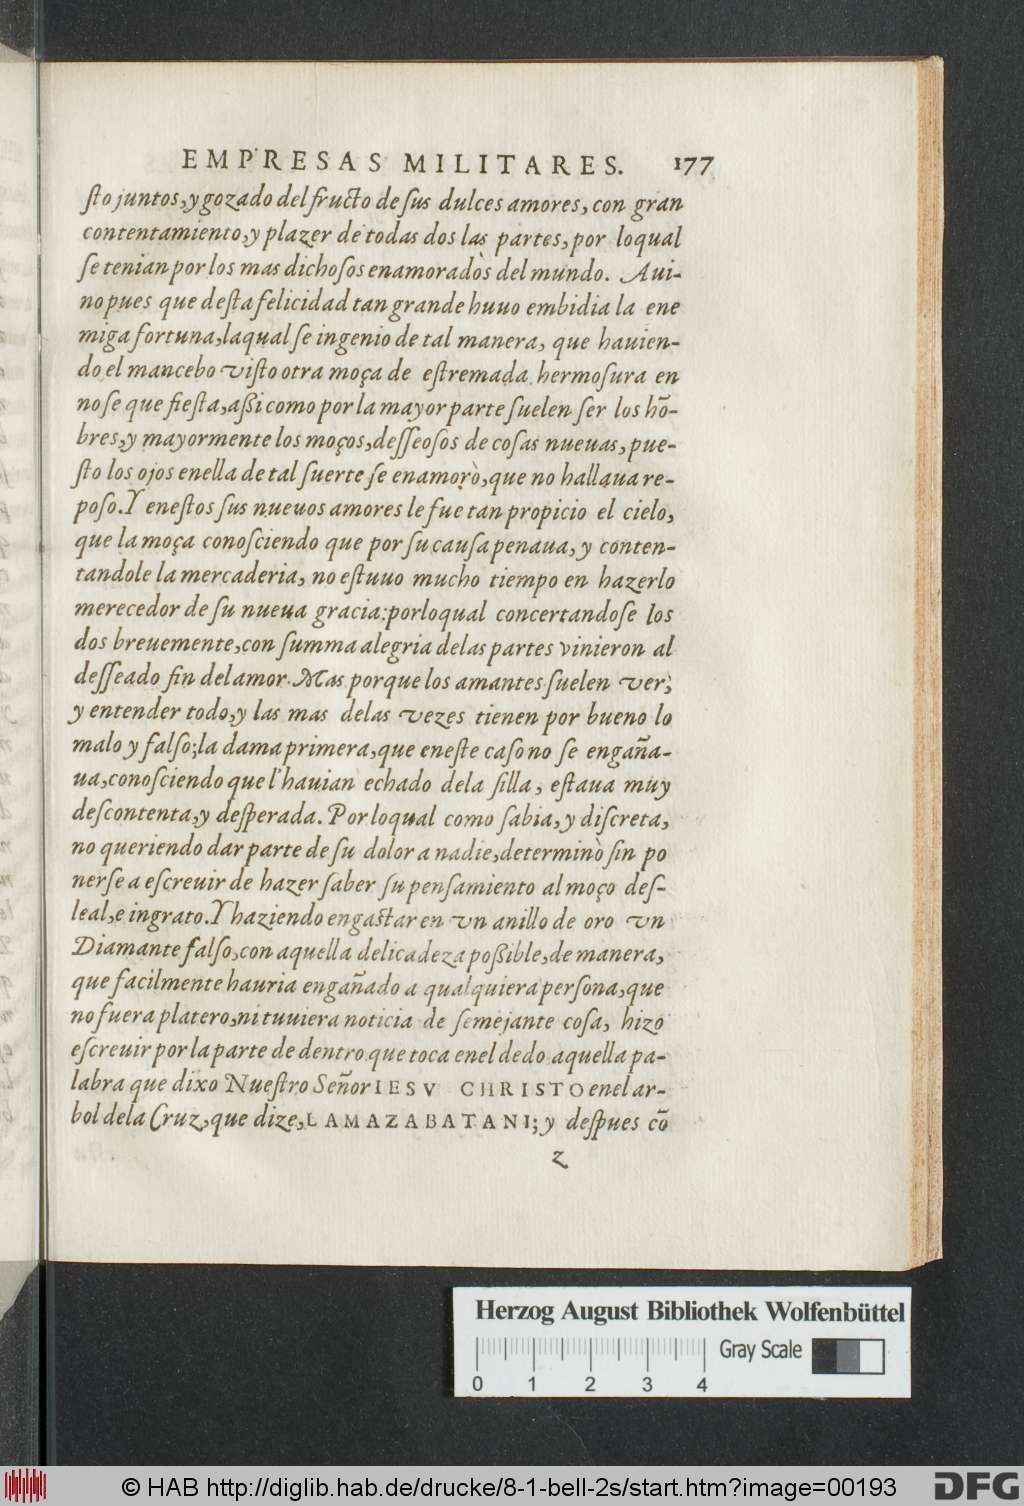 EMPRESAS MILITARES. 177
ſto juntos, y gozado del fructo de ſus dulces amores, con gran
contentamiento, y plazer de todas dos las partes, por loqual
ſe tenian por los mas dichoſos enamoradòs del mundo. Aui-
no pues que deſta felicidad tan grande huuo embidia la ene
miga fortuna, laqual ſe ingenio de tal manera, que hauien-
do el mancebo viſto otra moça de eſtremada hermoſura en
no ſe que fieſta, aßi como por la mayor parte ſuelen ſer los hō-
bres, y mayormente los moços, deſſeoſos de coſas nueuas, pue-
ſto los ojos enella de tal ſuerte ſe enamorò, que no hallaua re-
poſo. Y eneſtos ſus nueuos amores le fue tan propicio el cielo,
que la moça conoſciendo que por ſu cauſa penaua, y conten-
tandole la mercaderia, no eſtuuo mucho tiempo en hazerlo
merecedor de ſu nueua gracia: porloqual concertandoſe los
dos breuemente, con ſumma alegria delas partes vinieron al
deſſeado fin del amor. Mas porque los amantes ſuelen ver,
y entender todo, y las mas delas vezes tienen por bueno lo
malo y falſo; la dama primera, que eneſte caſo no ſe engaña-
ua, conoſciendo que l'hauian echado dela ſilla, eſtaua muy
deſcontenta, y deſperada. Por loqual como ſabia, y diſcreta,
no queriendo dar parte de ſu dolor a nadie, determinò ſin po
nerſe a eſcreuir de hazer ſaber ſu penſamiento al moço deſ-
leal, e ingrato. Y haziendo engaſtar en vn anillo de oro vn
Diamante falſo, con aquella delicadeza poßible, de manera,
que facilmente hauria engañado a qualquiera perſona, que
no fuera platero, ni tuuiera noticia de ſemejante coſa, hizo
eſcreuir por la parte de dentro que toca enel dedo aquella pa-
labra que dixo Nueſtro Señor IESV CHRISTO enel ar-
bol dela Cruz, que dize, LAMAZABATANI; y deſpues cō
z
Herzog August Bibliothek Wolfenbüttel
Gray Scale
0 1 2 3 4
© HAB http://diglib.hab.de/drucke/8-1-bell-2s/start.htm?image=00193
DFG